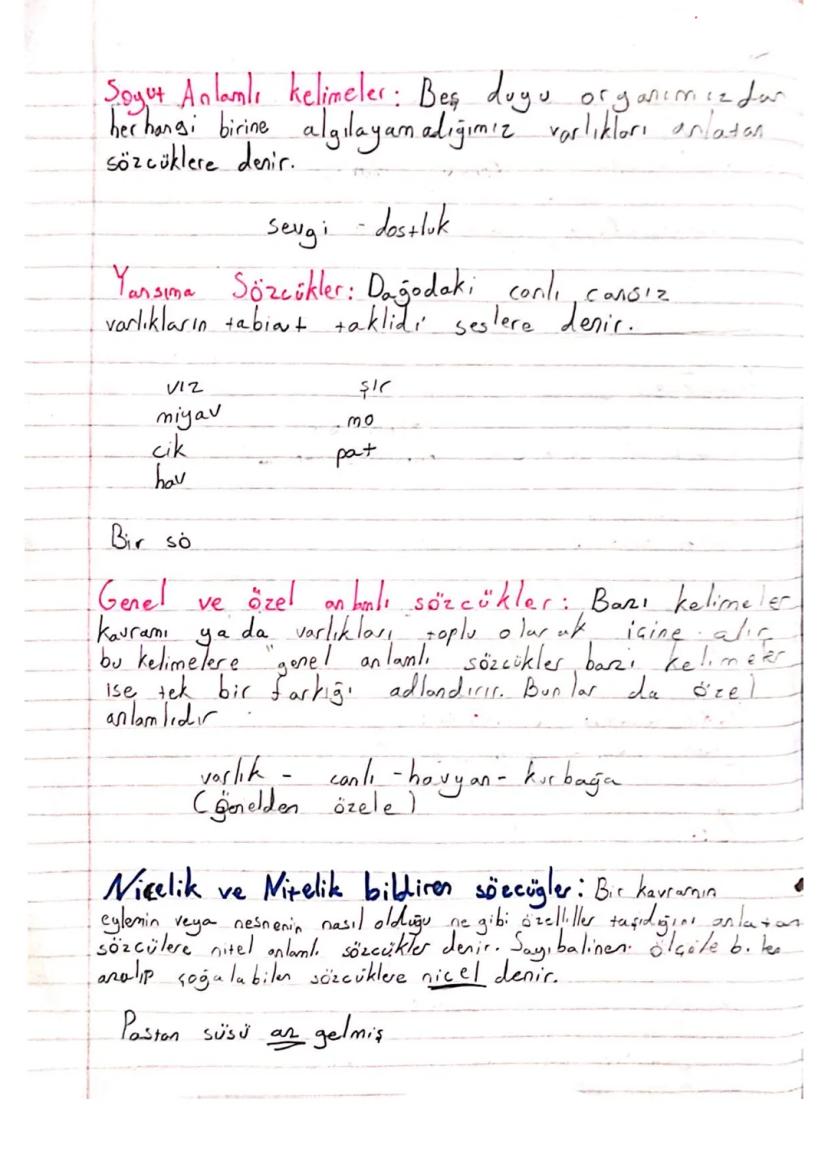 Soyut Anlamlı kelimeler: Beş duyu organımızdan
herhangi birine algılayamadığımız varlıkları anlatan
sözcüklere denir.
sevgi - dostluk
Yansıma Sözcükler: Dağodaki canlı, cansız
varlıkların tabiat taklidi seslere denir.
vız şır
miyav mo
cik pat
hav
Bir sö
Genel ve özel anlamlı sözcükler: Bazı kelimeler
kavramı ya da varlıkları toplu olarak içine alır
bu kelimelere "genel anlamlı sözcükler bazı kelimeler
ise tek bir farkığı adlandırır. Bunlar da özel
anlamlıdır
varlık - canlı - hayvan - kurbağa
(genelden özele)
Nicelik ve Nitelik bildiren söccügler: Bir kavramın
eylemin veya nesnenin nasıl olduğu ne gibi özelliller taşıdığını anlatan
sözcülere nitel anlamlı sözcükler denir. Sayıbalinen ölçüle b.
azalıp çoğalabilen sözcüklere nicel denir.
Pastan süsü az gelmiş